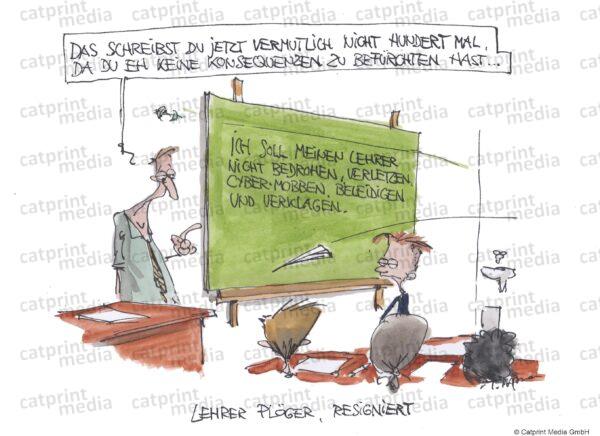 DAS SCHREIBST DU JETZT VERMUTLICH NICHT HUNDERT MAL,
DA DU EH KEINE KONSEQUENZEN ZU BEFÜRCHTEN HAST...
ICH SOLL MEINEN LEHRER
NICHT BEDROHEN, VERLETZEN,
CYBER-MOBBEN, BELEIDIGEN
UND VERKLAGEN.
LEHRER PLÖGER, RESIGNIERT
© Catprint Media GmbH
catprint
media